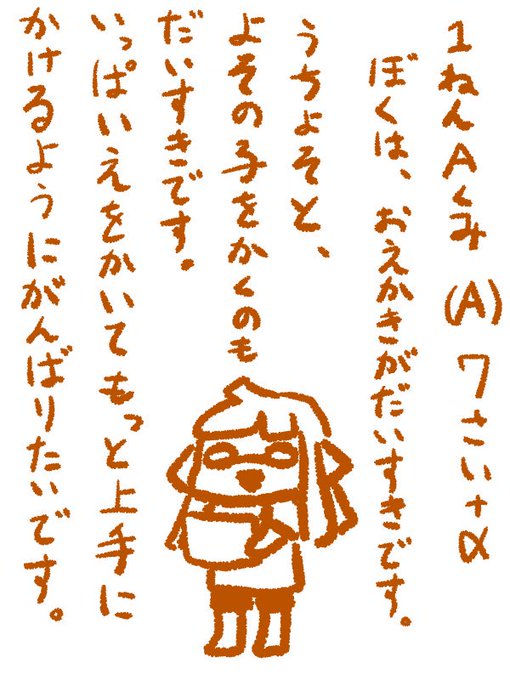 1ねんAくみ (A) 7さい+α
ぼくは、おえかきがだいすきです。
うちよそと、
よその子をかくのも
だいすきです。
いっぱいえをかいてもっと上手に
かけるようにがんばりたいです。